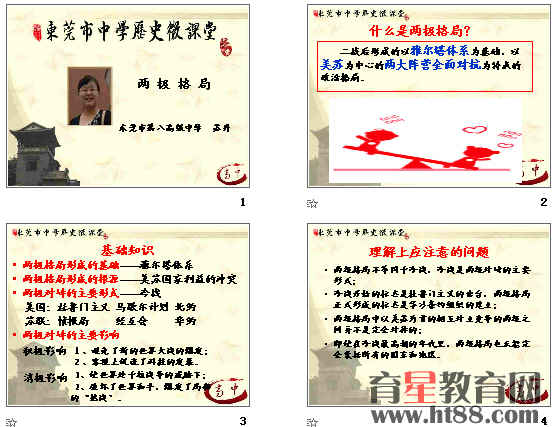 东莞市中学历史微课堂
两极格局
东莞市第八高级中学 苏丹
高中
1
东莞市中学历史微课堂
什么是两极格局？
二战后形成的以雅尔塔体系为基础，以
美苏为中心的两大阵营全面对抗为特点的
政治格局。
高中
2
东莞市中学历史微课堂
基础知识
两极格局形成的基础——雅尔塔体系
两极格局形成的根源——美苏国家利益的冲突
两极对峙的主要形式——冷战
美国：杜鲁门主义 马歇尔计划 北约
苏联：情报局 经互会 华约
两极对峙的主要影响
积极影响 1、避免了新的世界大战的爆发；
2、客观上促进了科技的发展。
消极影响 1、使世界处于核战争的威胁下；
2、破坏了世界和平，爆发了局部
的“热战”。
高中
3
东莞市中学历史微课堂
理解上应注意的问题
两极格局不等同于冷战，冷战是两极对峙的主要
形式；
冷战开始的标志是杜鲁门主义的出台，两极格局
正式形成的标志是华沙条约组织的建立；
两极格局中以美苏为首的相互对立竞争的两极之
间并不是完全对称的；
即使在冷战最高潮的年代里，两极格局也未能完
全囊括所有的国家和地区。
4
育星教育网
www.ht88.com